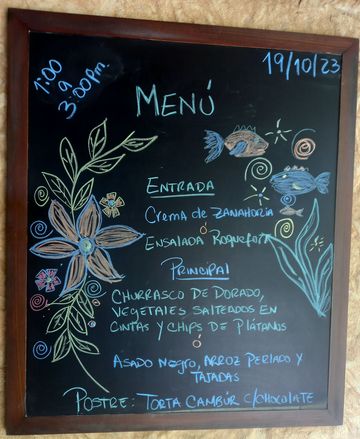 1:00
a
3:00 Pm.
19/10/23
MENÚ
ENTRADA
Crema de ZANAHORIA
ó
ENSALADA ROQUEFORT
PRINCIPAL
CHURRASCO DE DORADO,
VEGETALES SALTEADOS EN
CINTAS Y CHIPS DE PLÁTANOS
ó
ASADO NEGRO, ARROZ PERLADO Y
TAJADAS
POSTRE: TORTA CAMBÚR C/CHOCOLATE